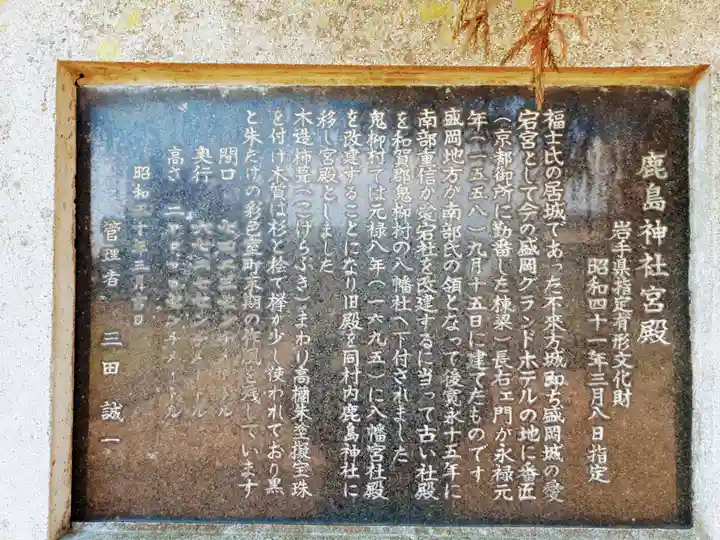 鹿島神社宮殿
岩手県指定有形文化財
昭和四十一年三月八日指定
福士氏の居城であった不来方城即ち盛岡城の愛
宕宮として今の盛岡グランドホテルの地に番匠
(京都御所に勤番した棟梁)長右ェ門が永禄元
年(一五五八)九月十五日に建てたものです
盛岡地方が南部氏の領となって後寛永十五年に
南部重信が愛宕社を改建するに当って古い社殿
を和賀郡鬼柳村の八幡社へ下付されました
鬼柳村では元禄八年(一六九五)に八幡宮社殿
を改建することになり旧殿を同村内鹿島神社に
移し宮殿としました
木造柿葺(こけらぶき)まわり高欄朱塗擬宝珠
を付け木質は杉と桧で欅が少し使われており黒
と朱だけの彩色室町末期の作風を残しています
間口 センチメートル
奥行 センチメートル
高さ 二 センチメートル
昭和 十年三月吉日
管理者 三田誠一